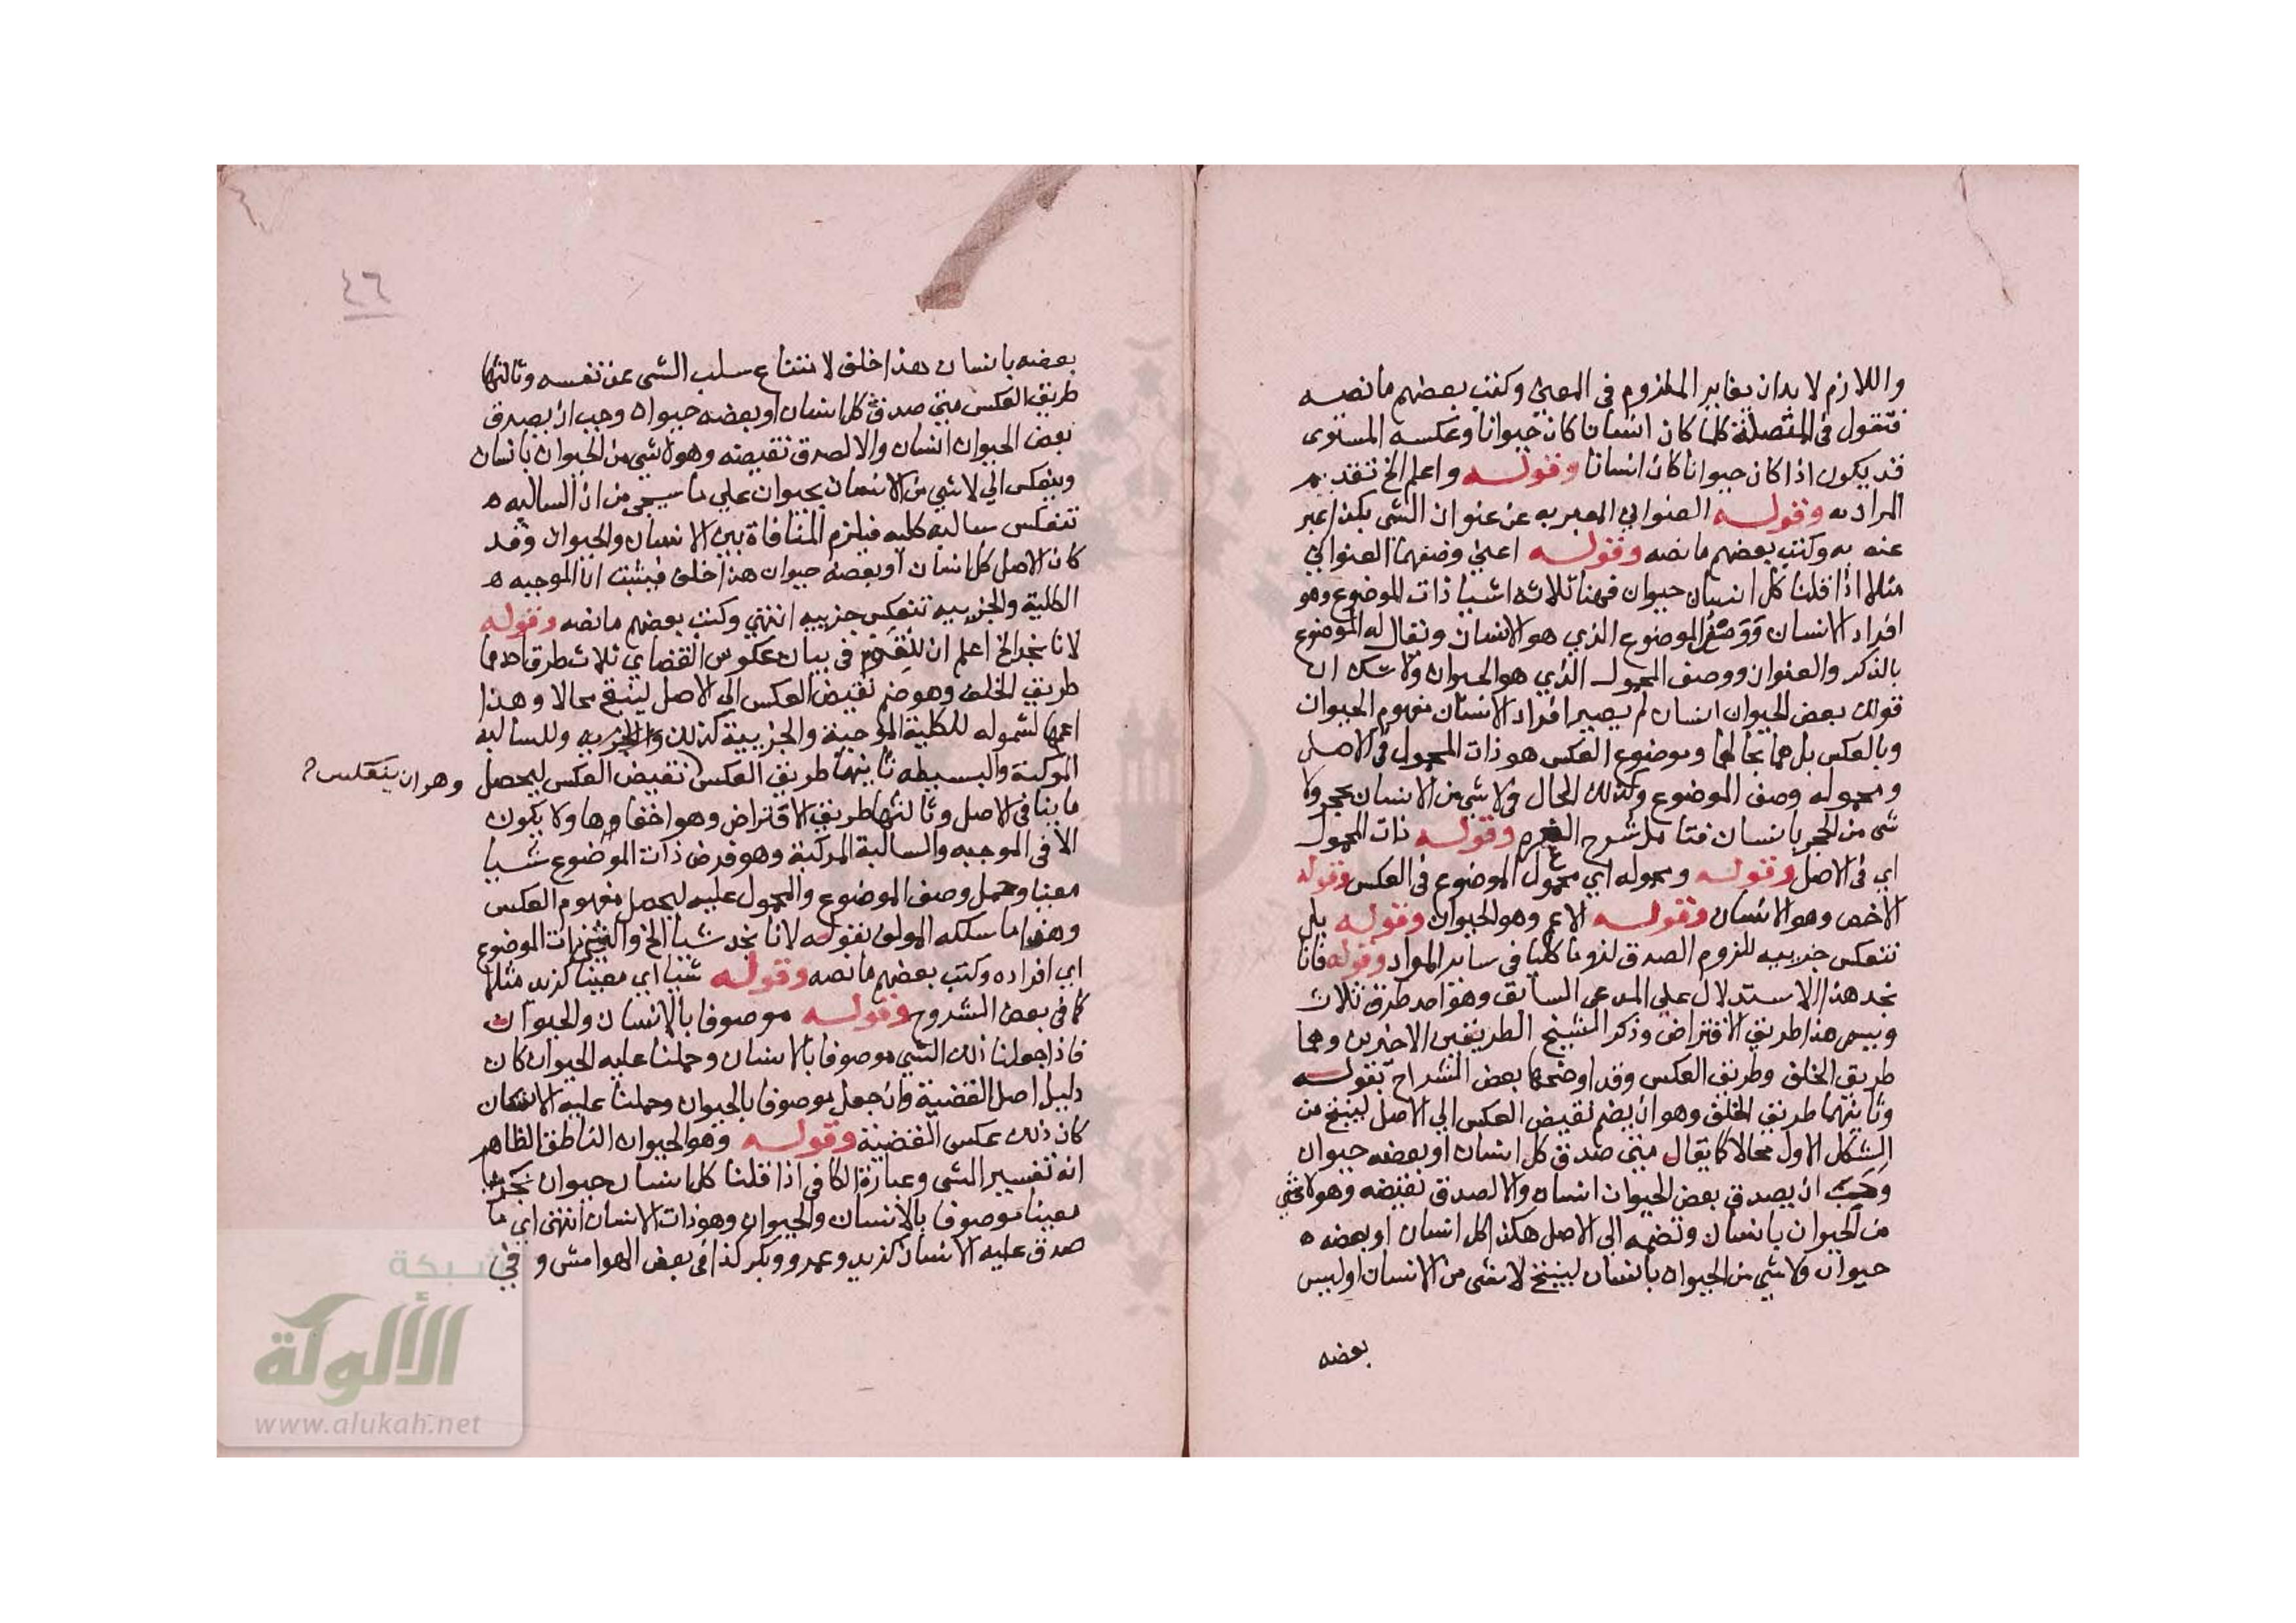 واللازم لا بد ان يغاير الملزوم في المعنى وكتب بعضهم ما نصه
فتقول في المتصلة كلما كان انسانا كان حيوانا وعكسه المستوى
قد يكون اذا كان حيوانا كان انسانا وقوله واعلم الخ تقديم
المراد به وقوله العنواني المعبر به عن عنوان الشي بكذا عبر
عنه به وكتب بعضهم ما نصه وقوله اعني وصفهما العنواني
مثلا اذا قلنا كل انسان حيوان فهنا ثلاثه اشيا ذات الموضوع وهو
افراد الانسان ووصف الموضوع الذي هو الانسان وتقال له الموضوع
بالذكر والعنوان ووصف المحمول الذي هو الحيوان ولا شك ان
قولك بعض الحيوان انسان لم يصير افراد الانسان مفهوم الحيوان
وبالعكس بل هما بحالهما وموضوع العكس هو ذات المحمول في الاصل
ومحموله وصف الموضوع وكذلك الحال في لا شي من الانسان بحجر ولا
شي من الحجر بانسان فتامل شرح وقوله ذات المحمول
اي في الاصل وقوله ومحموله اي محمول الموضوع في العكس وقوله
الاخص وهو الانسان وقوله الاعم وهو الحيوان وقوله بل
تنعكس جزييه للزوم الصدق لزوما كليا في ساير المواد وقوله فانا
نجد هذا الاستدلال على المدعى السابق وهو احد طرق ثلاث
ويسمى هذا طريق الافتراض وذكر الشيخ الطريقين الاخيرين وهما
طريق الخلف وطريق العكس وقد اوضحها بعض الشراح بقوله
وثانيهما طريق الخلف وهو ان يضم نقيض العكس الى الاصل لينتج من
الشكل الاول محالا كما يقال متى صدق كل انسان او بعضه حيوان
وجب ان يصدق بعض الحيوان انسان والا لصدق نقيضه وهو لا شي
من الحيوان بانسان وتضمه الى الاصل هكذا كل انسان او بعضه
حيوان ولا شي من الحيوان بانسان لينتج لا شي من الانسان او ليس
بعضه
٤٦
بعضه بانسان هذا خلف لامتناع سلب الشي عن نفسه وثالثها
طريق العكس متى صدق كل انسان او بعضه حيوان وجب ان يصدق
بعض الحيوان انسان والا لصدق نقيضه وهو لا شي من الحيوان بانسان
وينعكس الي لا شي من الانسان بحيوان على ما سيجي من ان السالبه
تنعكس سالبه كليه فيلزم المنافاة بين الانسان والحيوان وقد
كان الاصل كل انسان او بعضه حيوان هذا خلف فيثبت ان الموجبه
الكلية والجزييه تنعكس جزييه انتهي وكتب بعضهم ما نصه وقوله
لانا نجد الخ اعلم ان للقوم في بيان عكوس القضاي ثلاث طرق احدها
طريق الخلف وهو ضم نقيض العكس الى الاصل لينتج محالا وهذا
اعمها لشموله للكلية الموجبة والجزيية كذلك وللسالبه
المركبة والبسيطه ثانيهما طريق العكس نقيض العكس ليحصل
وهو ان ينعكس
ما ينافى الاصل وثالثها طريق الافتراض وهو اخفاوها ولا يكون
الا في الموجبه والسالبة المركبة وهو فرض ذات الموضوع شيا
معينا وحمل وصف الموضوع والمحمول عليه ليحصل مفهوم العكس
وهذا ما سلكه المولف بقوله لانا نجد شيا الخ والشي ذات الموضوع
اي افراده وكتب بعضهم ما نصه وقوله شيا اي معينا كزيد مثلا
كما في بعض الشروح وقوله موصوفا بالانسان والحيوان
فاذا جعلنا ذلك الشي موصوفا بالانسان وحملنا عليه الحيوان كان
دليل اصل القضية وان جعل موصوفا بالحيوان وحملنا عليه الانسان
كان ذلك عكس القضية وقوله وهو الحيوان الناطق الظاهر
انه تفسير الشي وعبارة الكافي اذا قلنا كل انسان حيوان نجد شيا
معينا موصوفا بالانسان والحيوان وهو ذات الانسان انتهى اي ما
صدق عليه الانسان كزيد وعمرو وبكر كذا في بعض الهوامش وفي
شبكة
الألوكة
www.alukah.net